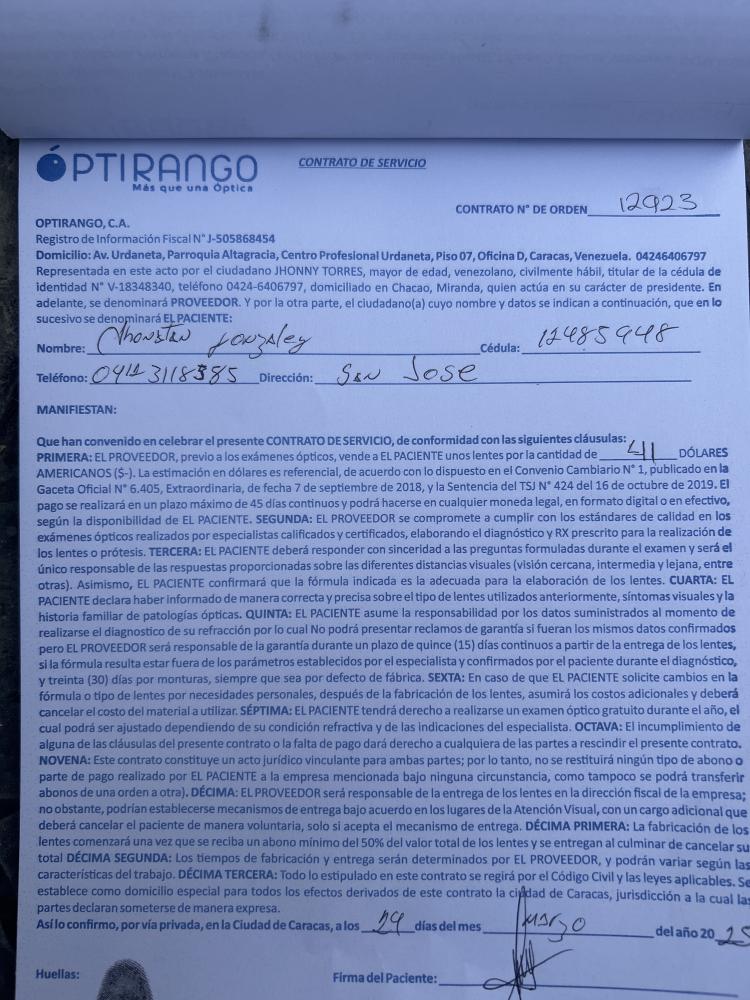 ÓPTIRANGO
Más que una Óptica
CONTRATO DE SERVICIO
CONTRATO N° DE ORDEN 12923
OPTIRANGO, C.A.
Registro de Información Fiscal N° J-505868454
Domicilio: Av. Urdaneta, Parroquia Altagracia, Centro Profesional Urdaneta, Piso 07, Oficina D, Caracas, Venezuela. 04246406797
Representada en este acto por el ciudadano JHONNY TORRES, mayor de edad, venezolano, civilmente hábil, titular de la cédula de
identidad N° V-18348340, teléfono 0424-6406797, domiciliado en Chacao, Miranda, quien actúa en su carácter de presidente. En
adelante, se denominará PROVEEDOR. Y por la otra parte, el ciudadano(a) cuyo nombre y datos se indican a continuación, que en lo
sucesivo se denominará EL PACIENTE:
Nombre: Jhonstan Gonzalez Cédula: 12485948
Teléfono: 0412 3118385 Dirección: San Jose
MANIFIESTAN:
Que han convenido en celebrar el presente CONTRATO DE SERVICIO, de conformidad con las siguientes cláusulas:
PRIMERA: EL PROVEEDOR, previo a los exámenes ópticos, vende a EL PACIENTE unos lentes por la cantidad de 41 DÓLARES
AMERICANOS ($-). La estimación en dólares es referencial, de acuerdo con lo dispuesto en el Convenio Cambiario N° 1, publicado en la
Gaceta Oficial N° 6.405, Extraordinaria, de fecha 7 de septiembre de 2018, y la Sentencia del TSJ N° 424 del 16 de octubre de 2019. El
pago se realizará en un plazo máximo de 45 días continuos y podrá hacerse en cualquier moneda legal, en formato digital o en efectivo,
según la disponibilidad de EL PACIENTE. SEGUNDA: EL PROVEEDOR se compromete a cumplir con los estándares de calidad en los
exámenes ópticos realizados por especialistas calificados y certificados, elaborando el diagnóstico y RX prescrito para la realización de
los lentes o prótesis. TERCERA: EL PACIENTE deberá responder con sinceridad a las preguntas formuladas durante el examen y será el
único responsable de las respuestas proporcionadas sobre las diferentes distancias visuales (visión cercana, intermedia y lejana, entre
otras). Asimismo, EL PACIENTE confirmará que la fórmula indicada es la adecuada para la elaboración de los lentes. CUARTA: EL
PACIENTE declara haber informado de manera correcta y precisa sobre el tipo de lentes utilizados anteriormente, síntomas visuales y la
historia familiar de patologías ópticas. QUINTA: EL PACIENTE asume la responsabilidad por los datos suministrados al momento de
realizarse el diagnostico de su refracción por lo cual No podrá presentar reclamos de garantía si fueran los mismos datos confirmados
pero EL PROVEEDOR será responsable de la garantía durante un plazo de quince (15) días continuos a partir de la entrega de los lentes,
si la fórmula resulta estar fuera de los parámetros establecidos por el especialista y confirmados por el paciente durante el diagnóstico,
y treinta (30) días por monturas, siempre que sea por defecto de fábrica. SEXTA: En caso de que EL PACIENTE solicite cambios en la
fórmula o tipo de lentes por necesidades personales, después de la fabricación de los lentes, asumirá los costos adicionales y deberá
cancelar el costo del material a utilizar. SÉPTIMA: EL PACIENTE tendrá derecho a realizarse un examen óptico gratuito durante el año, el
cual podrá ser ajustado dependiendo de su condición refractiva y de las indicaciones del especialista. OCTAVA: El incumplimiento de
alguna de las cláusulas del presente contrato o la falta de pago dará derecho a cualquiera de las partes a rescindir el presente contrato.
NOVENA: Este contrato constituye un acto jurídico vinculante para ambas partes; por lo tanto, no se restituirá ningún tipo de abono o
parte de pago realizado por EL PACIENTE a la empresa mencionada bajo ninguna circunstancia, como tampoco se podrá transferir
abonos de una orden a otra). DÉCIMA: EL PROVEEDOR será responsable de la entrega de los lentes en la dirección fiscal de la empresa;
no obstante, podrían establecerse mecanismos de entrega bajo acuerdo en los lugares de la Atención Visual, con un cargo adicional que
deberá cancelar el paciente de manera voluntaria, solo si acepta el mecanismo de entrega. DÉCIMA PRIMERA: La fabricación de los
lentes comenzará una vez que se reciba un abono mínimo del 50% del valor total de los lentes y se entregan al culminar de cancelar su
total DÉCIMA SEGUNDA: Los tiempos de fabricación y entrega serán determinados por EL PROVEEDOR, y podrán variar según las
características del trabajo. DÉCIMA TERCERA: Todo lo estipulado en este contrato se regirá por el Código Civil y las leyes aplicables. Se
establece como domicilio especial para todos los efectos derivados de este contrato la ciudad de Caracas, jurisdicción a la cual las
partes declaran someterse de manera expresa.
Así lo confirmo, por vía privada, en la Ciudad de Caracas, a los 24 días del mes marzo del año 2025
Huellas: Firma del Paciente: